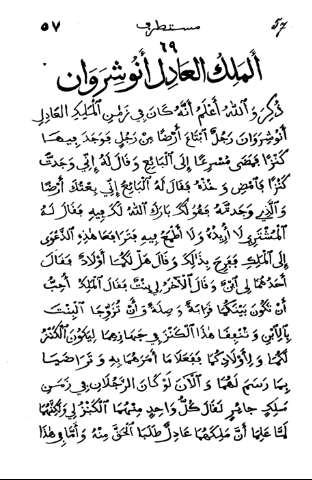 ٥٧ مستطرف 57
٦٩
اَلْمَلِكُ الْعَادِلُ أَنُوشِرَوَان
ذُكِرَ وَٱللهُ أَعْلَمُ أَنَّهُ كَانَ فِي زَمَنِ ٱلْمَلِكِ ٱلْعَادِلِ
أَنُوشِرَوَانَ رَجُلٌ ٱبْتَاعَ أَرْضًا مِنْ رَجُلٍ فَوَجَدَ فِيهَا
كَنْزًا فَمَضَى مُسْرِعًا إِلَى ٱلْبَائِعِ وَقَالَ لَهُ إِنِّي وَجَدتُّ
كَنْزًا فَٱمْضِ وَخُذْهُ فَقَالَ لَهُ ٱلْبَائِعُ إِنِّي بِعْتُكَ أَرْضًا
وَٱلَّذِي وَجَدتَّهُ فَهُوَ لَكَ بَارَكَ ٱللهُ لَكَ فِيهِ فَقَالَ لَهُ
ٱلْمُشْتَرِي لَا أُرِيدُهُ وَلَا أَطْمَعُ فِيهِ فَتَرَافَعَا هٰذِهِ ٱلدَّعْوَى
إِلَى ٱلْمَلِكِ فَفَرِحَ بِذٰلِكَ وَقَالَ هَلْ لَكُمَا أَوْلَادٌ فَقَالَ
أَحَدُهُمَا لِي ٱبْنٌ وَقَالَ ٱلْآخَرُ لِي بِنْتٌ فَقَالَ ٱلْمَلِكُ أُحِبُّ
أَنْ تَكُونَ بَيْنَكُمَا قَرَابَةٌ وَصِلَةٌ وَأَنْ تُزَوِّجَا ٱلْبِنْتَ
بِٱلِٱبْنِ وَتُنْفِقَا هٰذَا ٱلْكَنْزَ فِي جَهَازِهِمَا لِيَكُونَ ٱلْكَنْزُ
لَكُمَا وَلِأَوْلَادِكُمَا فَفَعَلَا مَا أَمَرَهُمَا بِهِ وَتَرَاضَيَا
بِمَا رَسَمَ لَهُمَا وَٱلْآنَ لَوْ كَانَ ٱلرَّجُلَانِ فِي زَمَنِ
مَلِكٍ جَائِرٍ لَقَالَ كُلُّ وَاحِدٍ مِنْهُمَا ٱلْكَنْزُ لِي وَلٰكِنَّهُمَا
لَمَّا عَلِمَا أَنَّ مَلِكَهُمَا عَادِلٌ طَلَبَا ٱلْحَقَّ مِنْهُ وَأَمَّا فِي هٰذَا